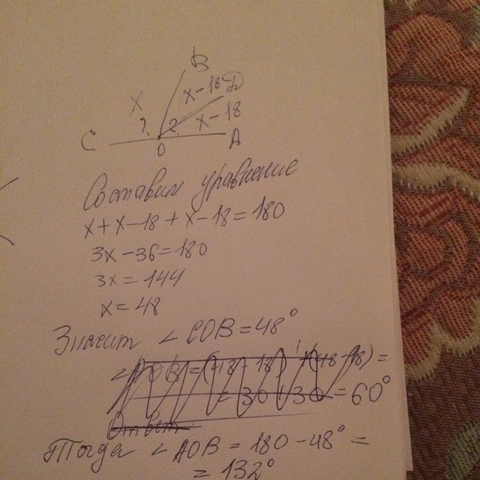 B
x-18 D
x
? 2 x-18
C O A
Составим уравнение
x+x-18+x-18=180
3x-36=180
3x=144
x=48
Значит ∠COB=48°
= 30+30=60°
Ответ
Тогда ∠AOB = 180-48°=
= 132°